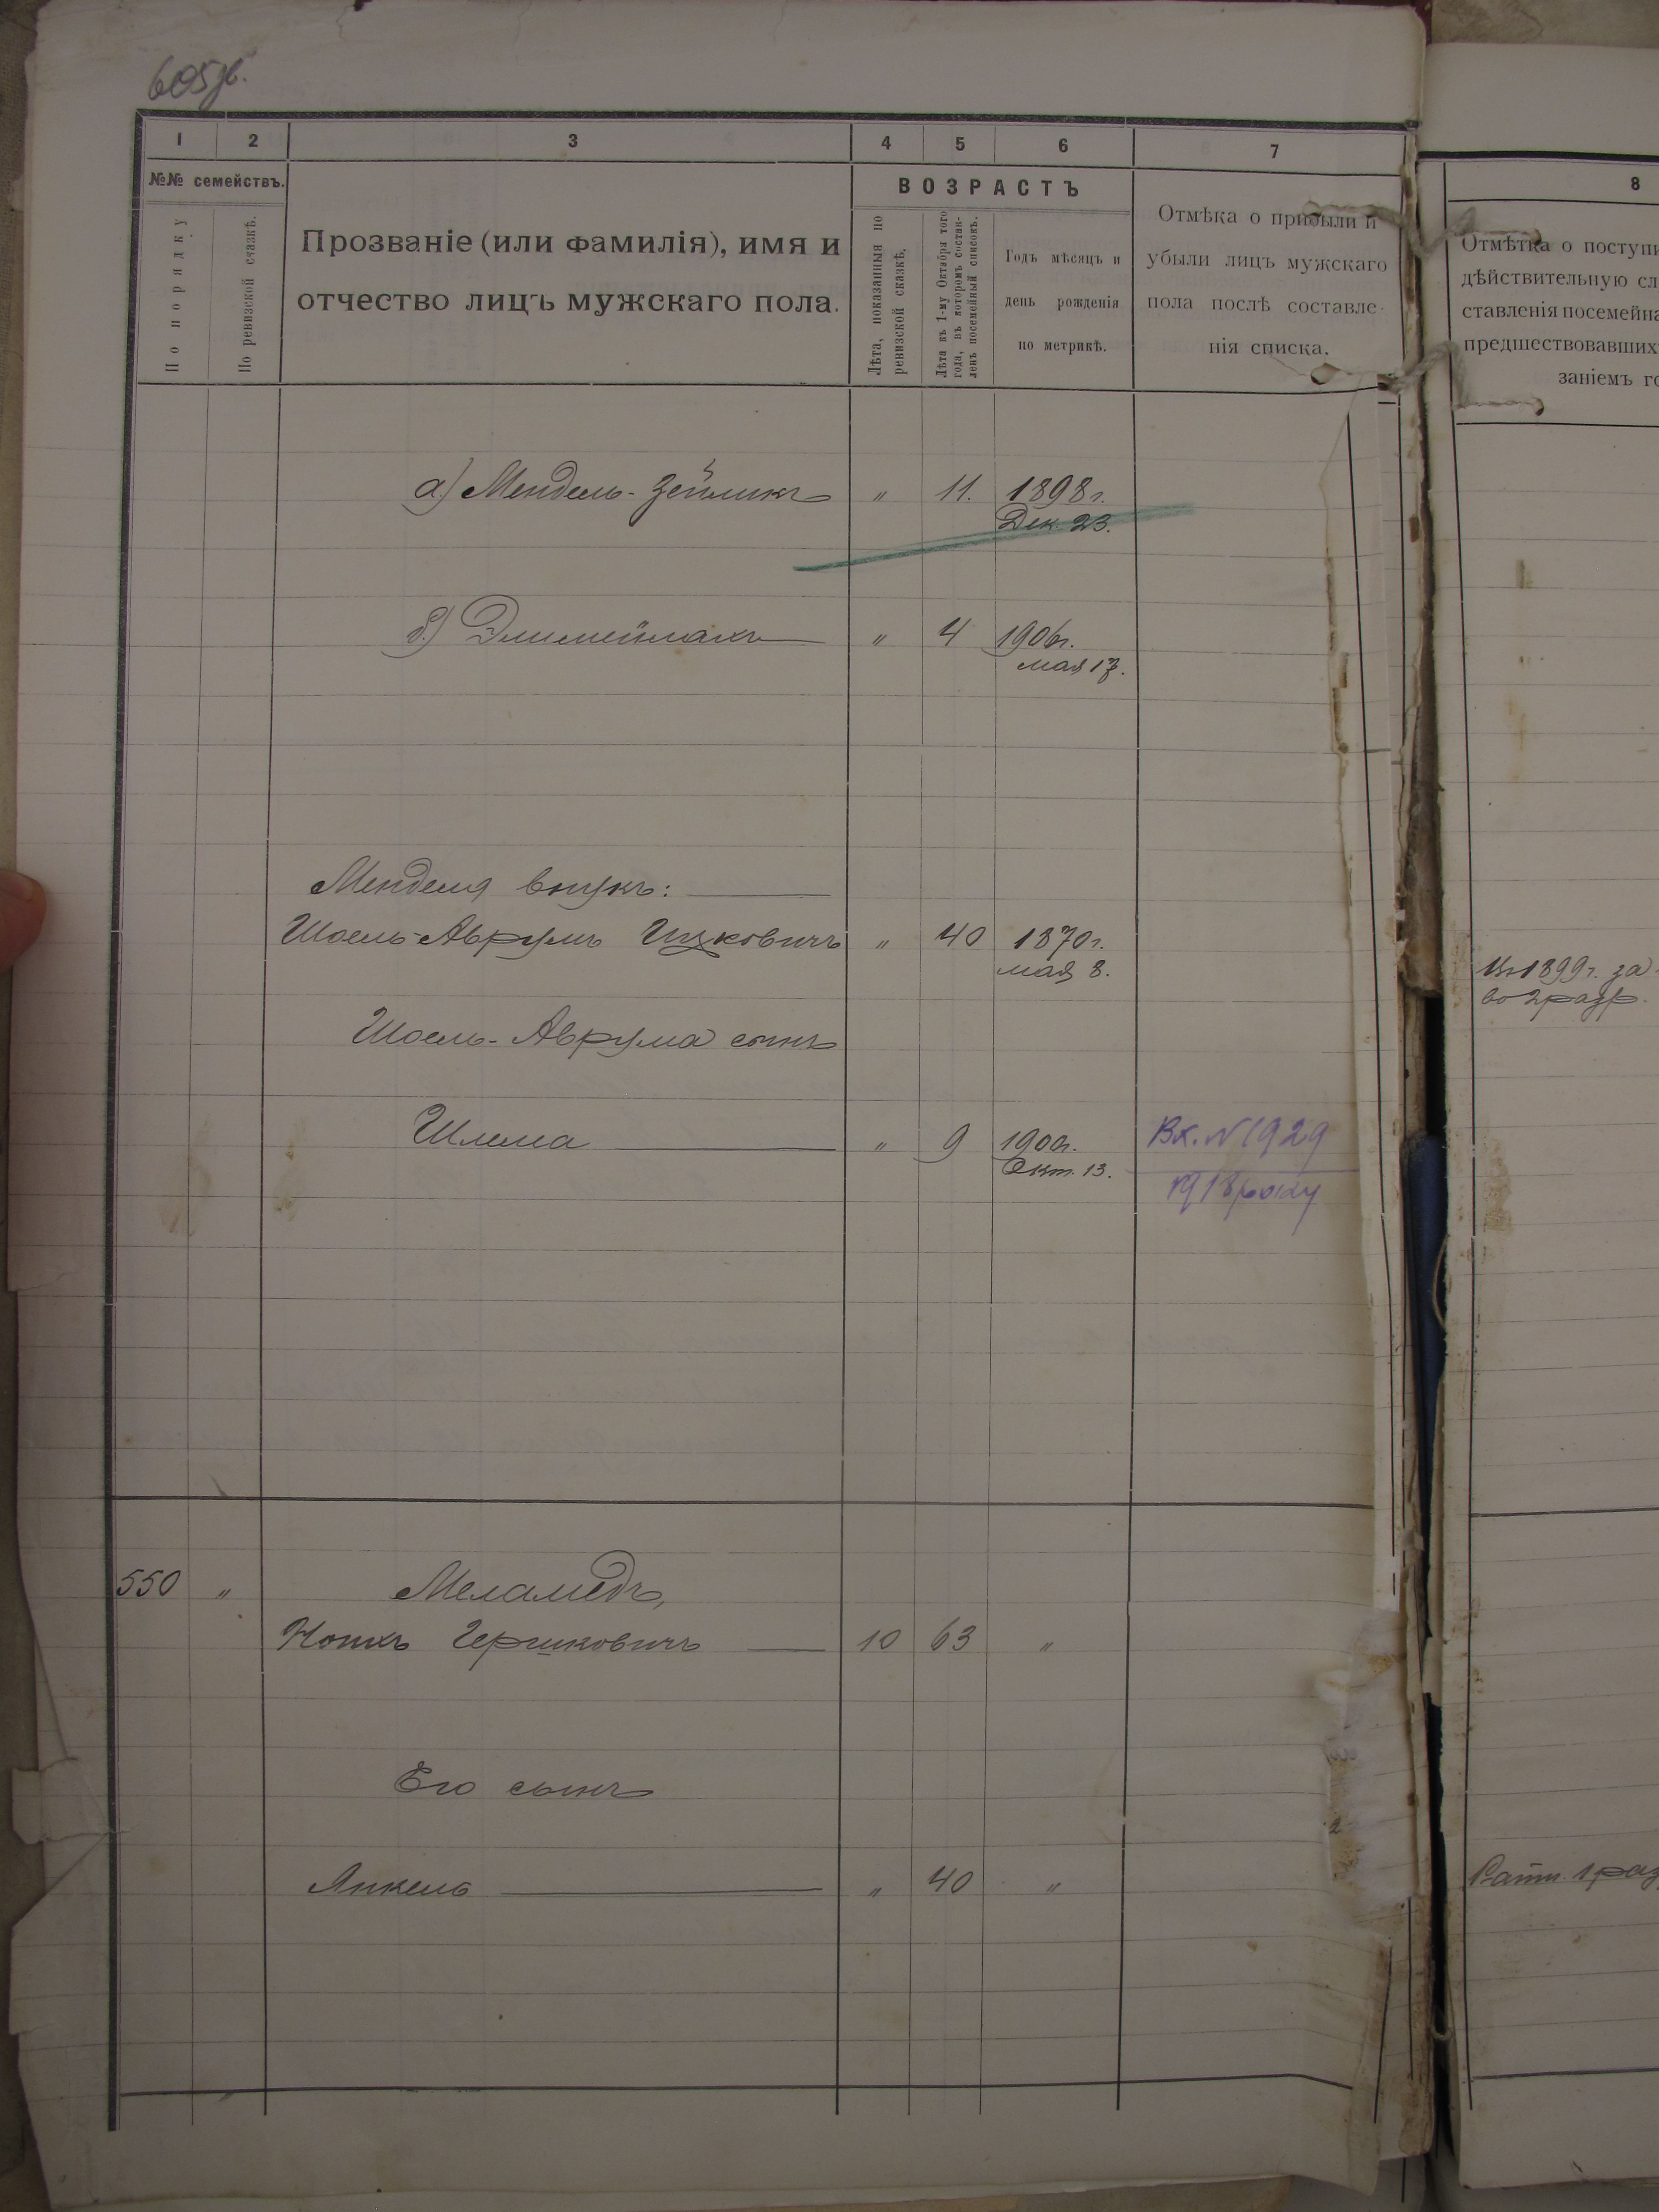 605 зв.
1 2 3 4 5 6 7
№№ семействъ.
По порядку
По ревизской сказкѣ.
Прозваніе (или фамилія), имя и
отчество лицъ мужскаго пола.
ВОЗРАСТЪ
Лѣта, показанныя по
ревизской сказкѣ,
Лѣта къ 1-му Октября того
года, въ которомъ состав-
ленъ посемейный списокъ.
Годъ мѣсяцъ и
день рожденія
по метрикѣ.
Отмѣка о прибыли и
убыли лицъ мужскаго
пола послѣ составле-
нія списка.
а) Мендель-Зейликъ " 11. 1898г.
Дек. 23.
б) Элимейлахъ " 4 1906г.
мая 17.
Менделя внукъ:
Шоель-Аврумъ Ицковичъ " 40 1870г.
мая 8.
Шоель-Аврума сынъ
Шлема " 9 1900г.
Окт. 13.
Вх. № 1929
1918 року
550 " Меламедъ,
Нотъ Гершковичъ 10 63 "
Его сынъ
Янкель " 40 "
8
Отмѣтка о поступи
дѣйствительную сл
ставленія посемейна
предшествовавших
заніемъ го
Въ 1899г. за
во 2 разр.
Ратн. 1 раз